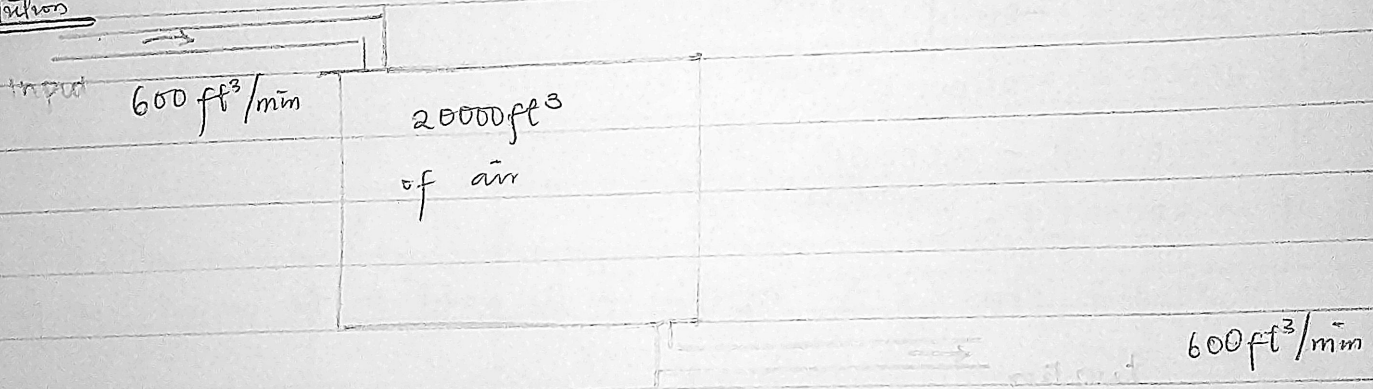 Input
600 ft³/min
20000ft³
of air
600ft³/min